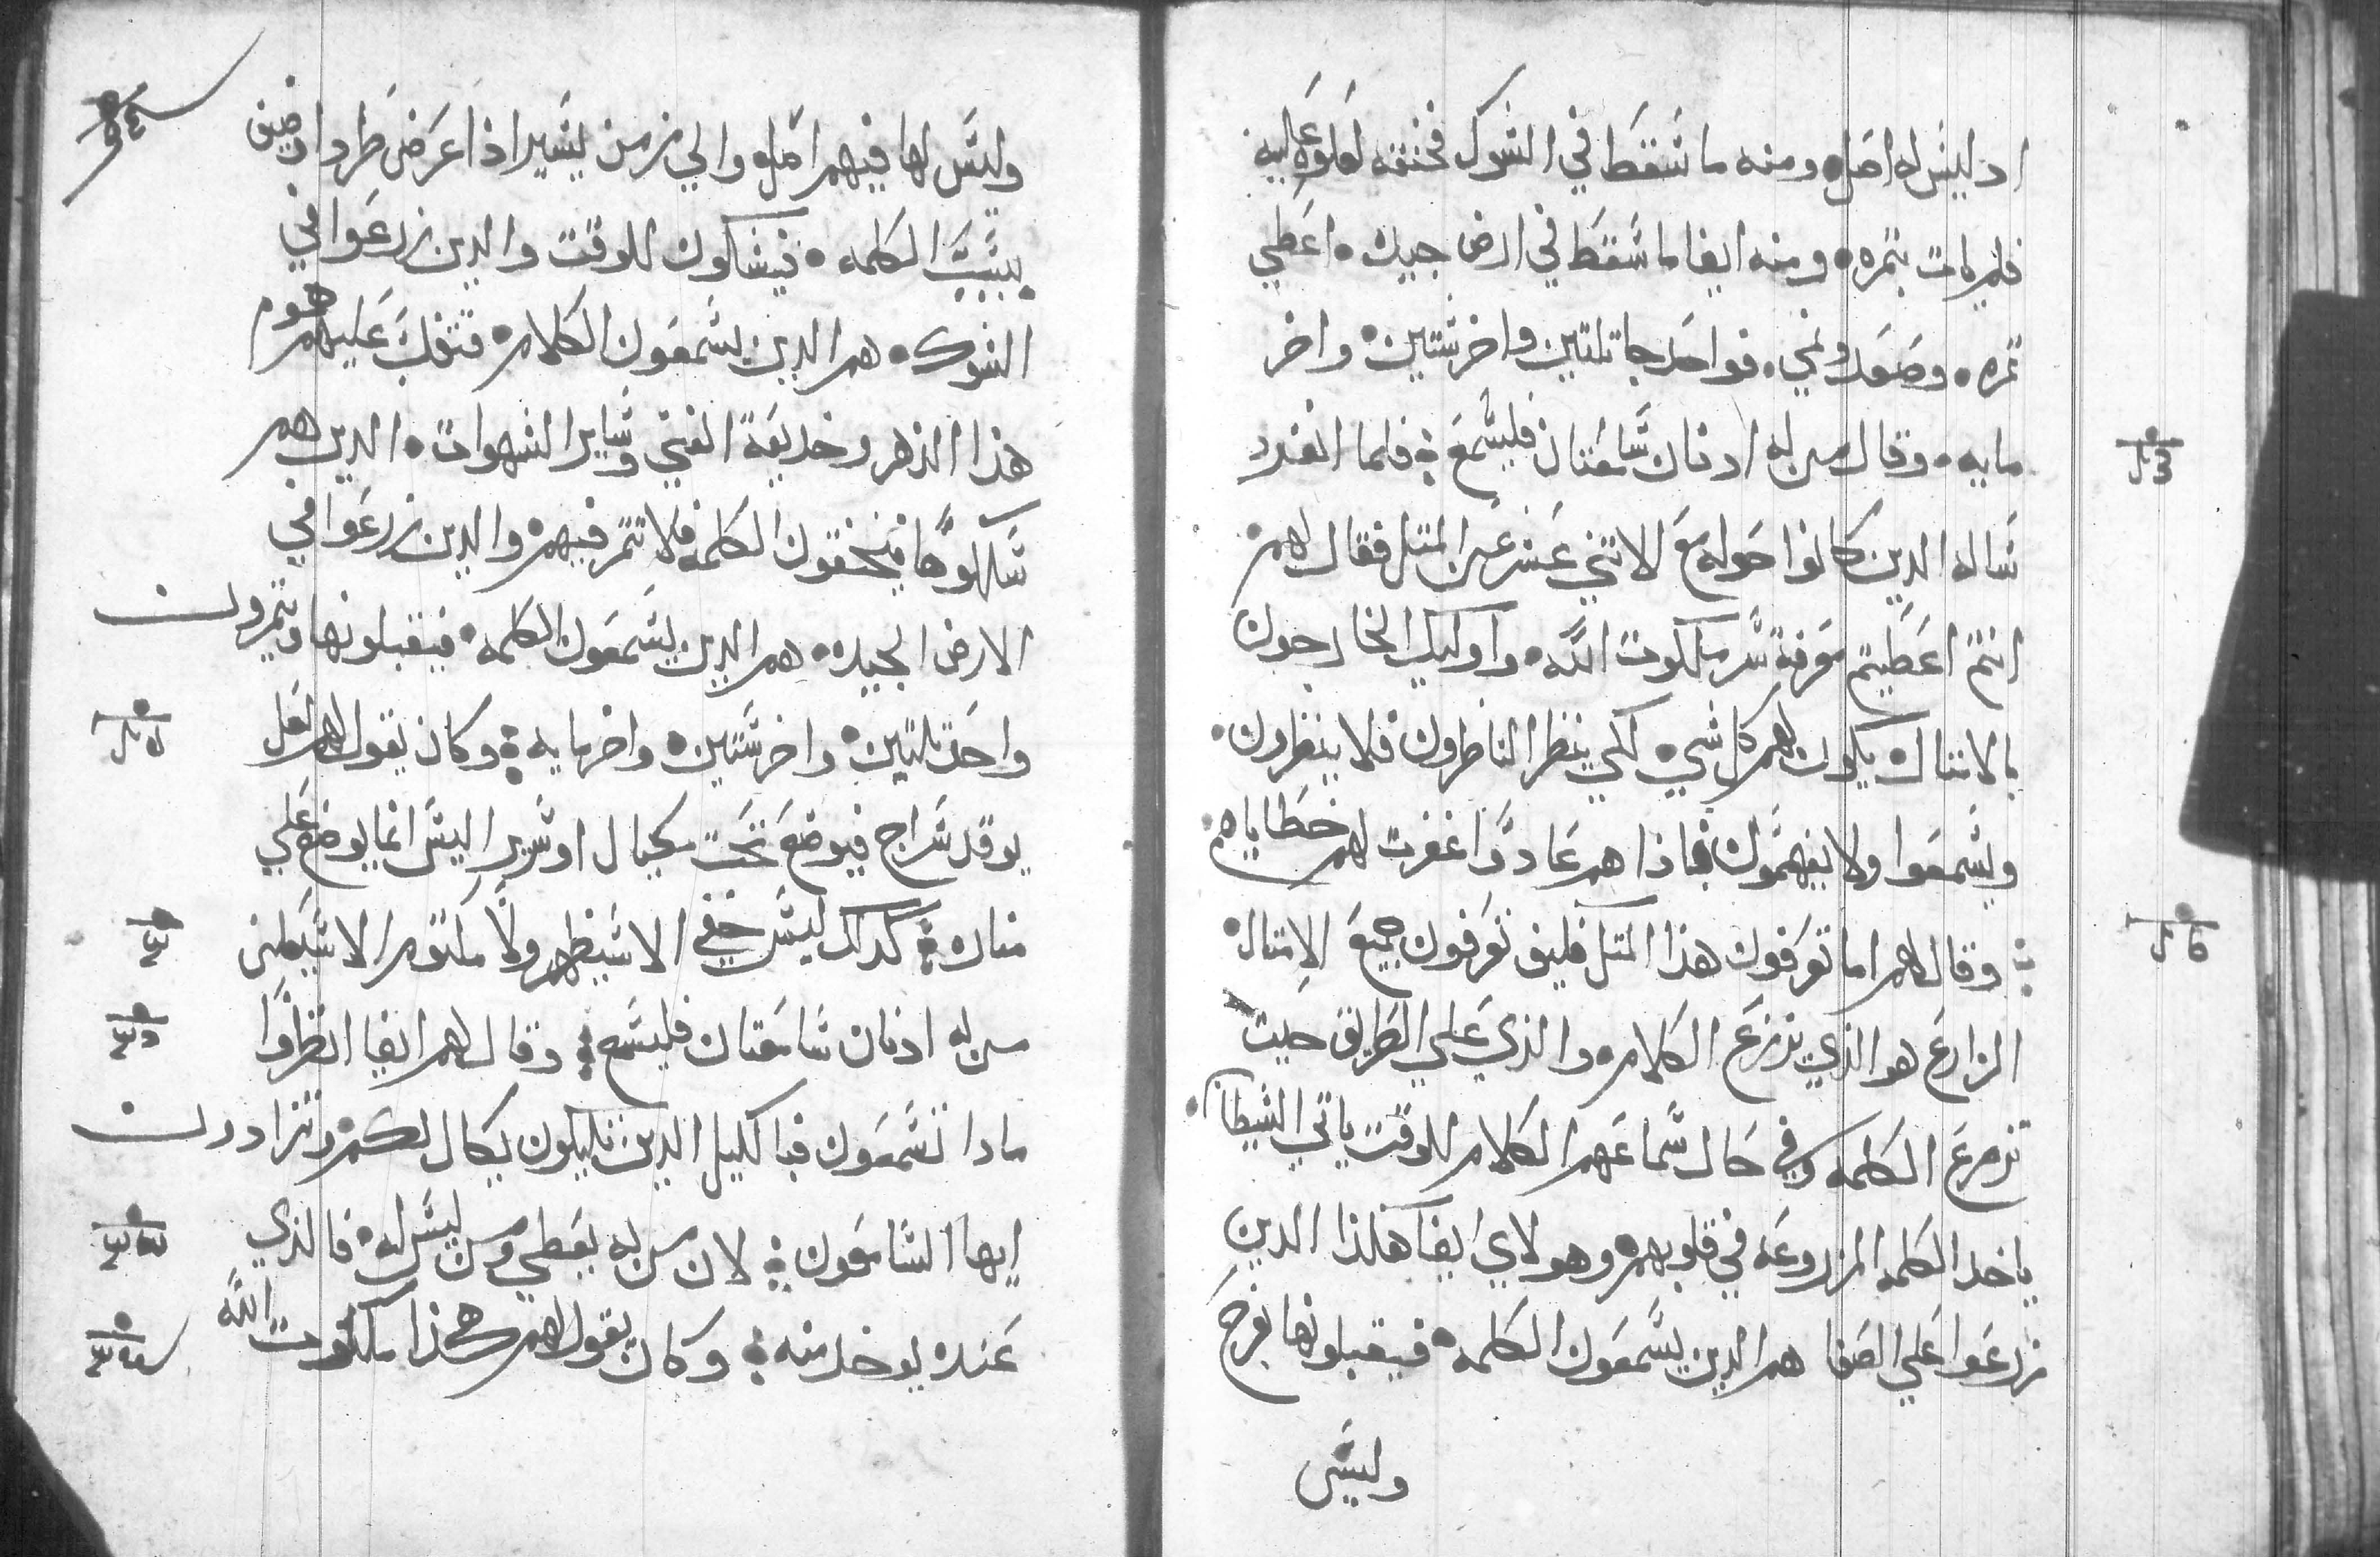 اد ليس له اصل ومنه ما سقط في الشوك فخنقه لعلوه عليه
فلم يات بثمره ومنه ايضا ما سقط في ارض جيده اعطي
ثمره وصعد ونمي فواحد جا بثلثين واخر ستين واخر
مايه وقال من له ادنان سامعتان فليسمع فلما انفرد
ساله الدين كانوا حوله مع الاتني عشر عن المتل فقال لهم
انتم اعطيتم معرفة سر ملكوت الله واوليك الخارجون
بالامتال يكون لهم كل شي لكي ينظر الناظرون فلا ينظرون
ويسمعوا ولا يفهمون فاذا هم عادوا غفرت لهم خطاياهم
وقال لهم اما تعرفون هذا المتل فكيف تعرفون جميع الامتال
الزارع هو الذي يزرع الكلام والذي علي الطريق حيت
تزرع الكلمه وفي حال سماعهم الكلام للوقت ياتي الشيطان
ياخد الكلمه المزروعه في قلوبهم وهولاي ايضا هكذا الدين
زرعوا علي الصفا هم الدين يسمعون الكلمه فيقبلونها بفرح
وليس
وليس لها فيهم اصل والي زمن يسير اذا عرض طرد او ضيق
بسبب الكلمه فيشكون للوقت والدين زرعوا في
الشوك هم الدين يسمعون الكلام فتغلب عليهم هموم
هذا الدهر وخديعة الغني وساير الشهوات الدين هم
سالكوها فيخنقون الكلمه فلا تثمر فيهم والدين زرعوا في
الارض الجيده هم الدين يسمعون الكلمه فيقبلونها ويثمرون
واحد تلتين واخر ستين واخر مايه وكان يقول لهم لعل
يوقد سراج فيوضع تحت مكيال او سرير اليس انما يوضع علي
مناره كدلك ليس خفي الا سيظهر ولا مكتوم الا سيعلن
من له اذنان سامعتان فليسمع وقال لهم ايضا انظروا
مادا تسمعون فبا لكيل الدين تكيلون يكال لكم وتزادون
ايها السامعون لان من له يعطي ومن ليس له فالذي
عنده يوخد منه وكان يقول لهم هكذا ملكوت الله